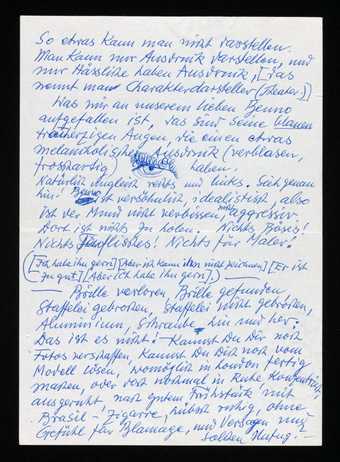 So etwas kann man nicht darstellen.
Man kann nur Ausdruck darstellen, und
nur Hässliche haben Ausdruck, [das
nennt man Charakterdarsteller (Theater.)]
Was mir an unserem lieben Benno
aufgefallen ist, das sind seine blauen
treuherzigen Augen, die einen etwas
melancholischen Ausdruck (verblasen,
froschartig) haben.
Natürlich ungleich rechts und links. Sieh genau
hin! Benno ist versöhnlich, idealistisch, also
ist der Mund nicht verbissen, nicht aggressiv.
Dort ist nichts zu holen. Nichts Böses!
Nichts Häßliches! Nichts für Maler!
([Ich habe ihn gern] [Aber ich kann ihn nicht zeichnen] [Er ist
zu gut] [Aber ich habe ihn gern].)
— Brille verloren Brille gefunden
Staffelei gebrochen, Staffelei nicht gebrochen,
Aluminium, Schraube hin und her.
Das ist es nicht! – Kannst Du Dir noch
Fotos verschaffen, kannst Du Dich noch vom
Modell lösen, womöglich in London fertig
machen, oder erst nochmal in Ruhe
ausgeruht nach gutem Frühstück mit
Brasil-Zigarre, hübsch ruhig, ohne
Gefühl für Blamage, und Versagen und
solchen Unfug. –